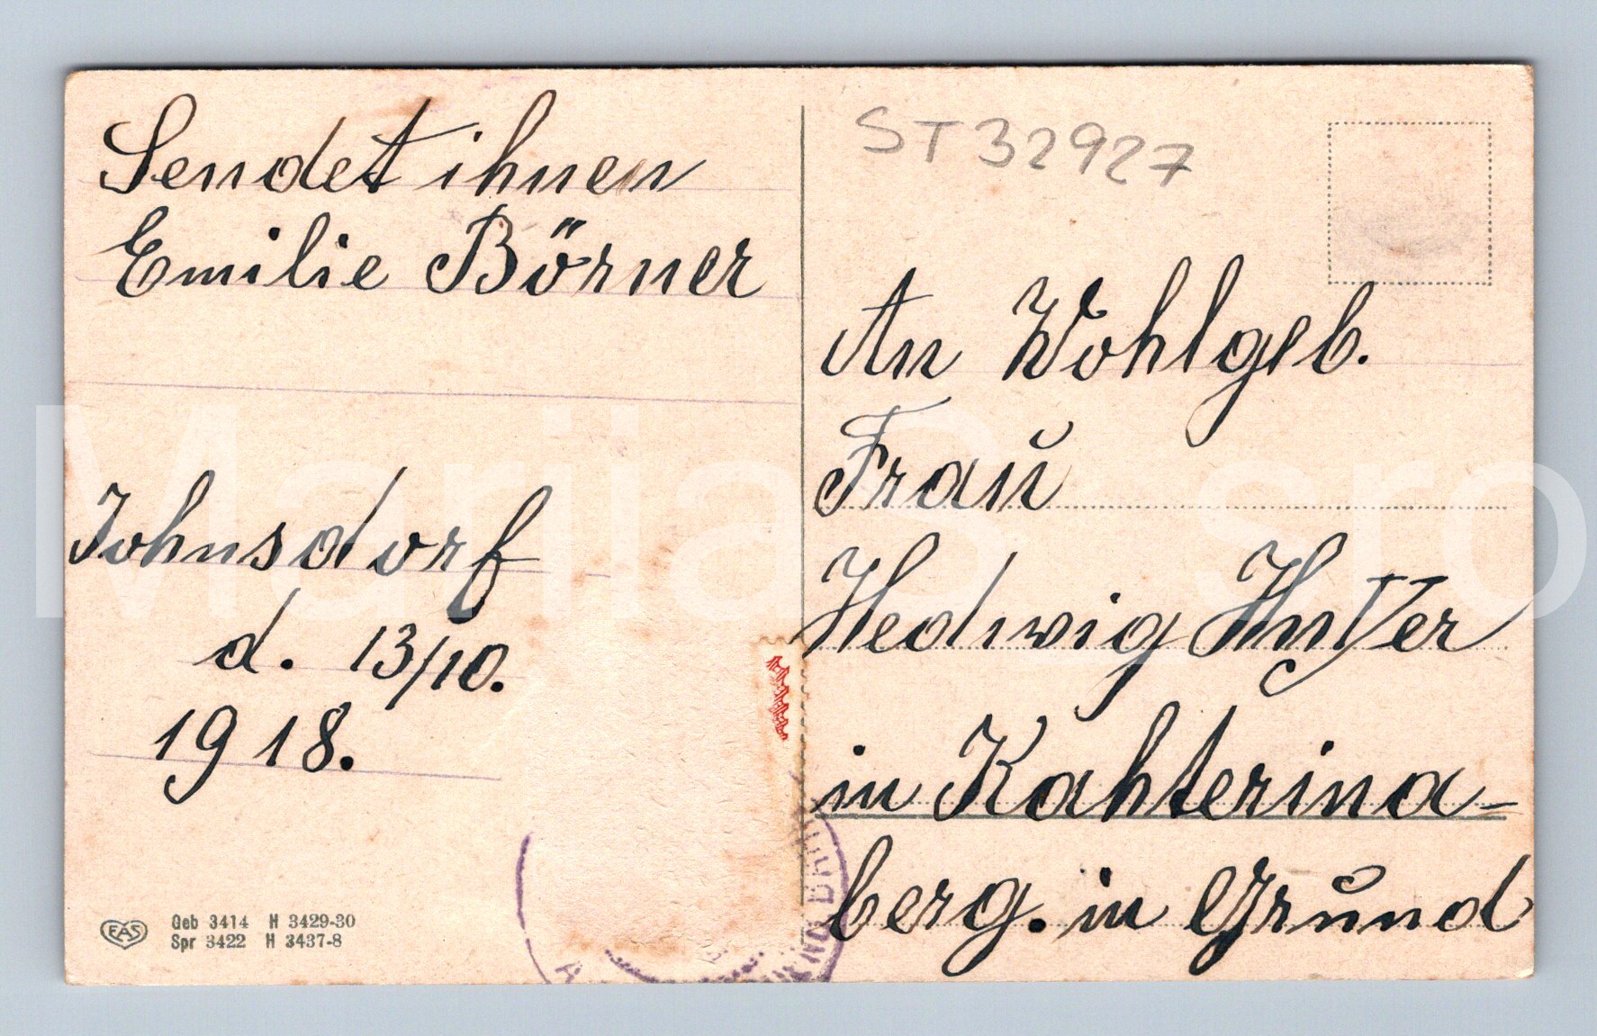 Sendet ihnen
Emilie Börner
Johnsdorf
d. 13/10.
1918.
EAS
Geb 3414 H 3429-30
Spr 3422 H 3437-8
ST32927
An Wohlgeb.
Fraŭ
Hedwig
in Kahterina-
berg. in Grŭnd